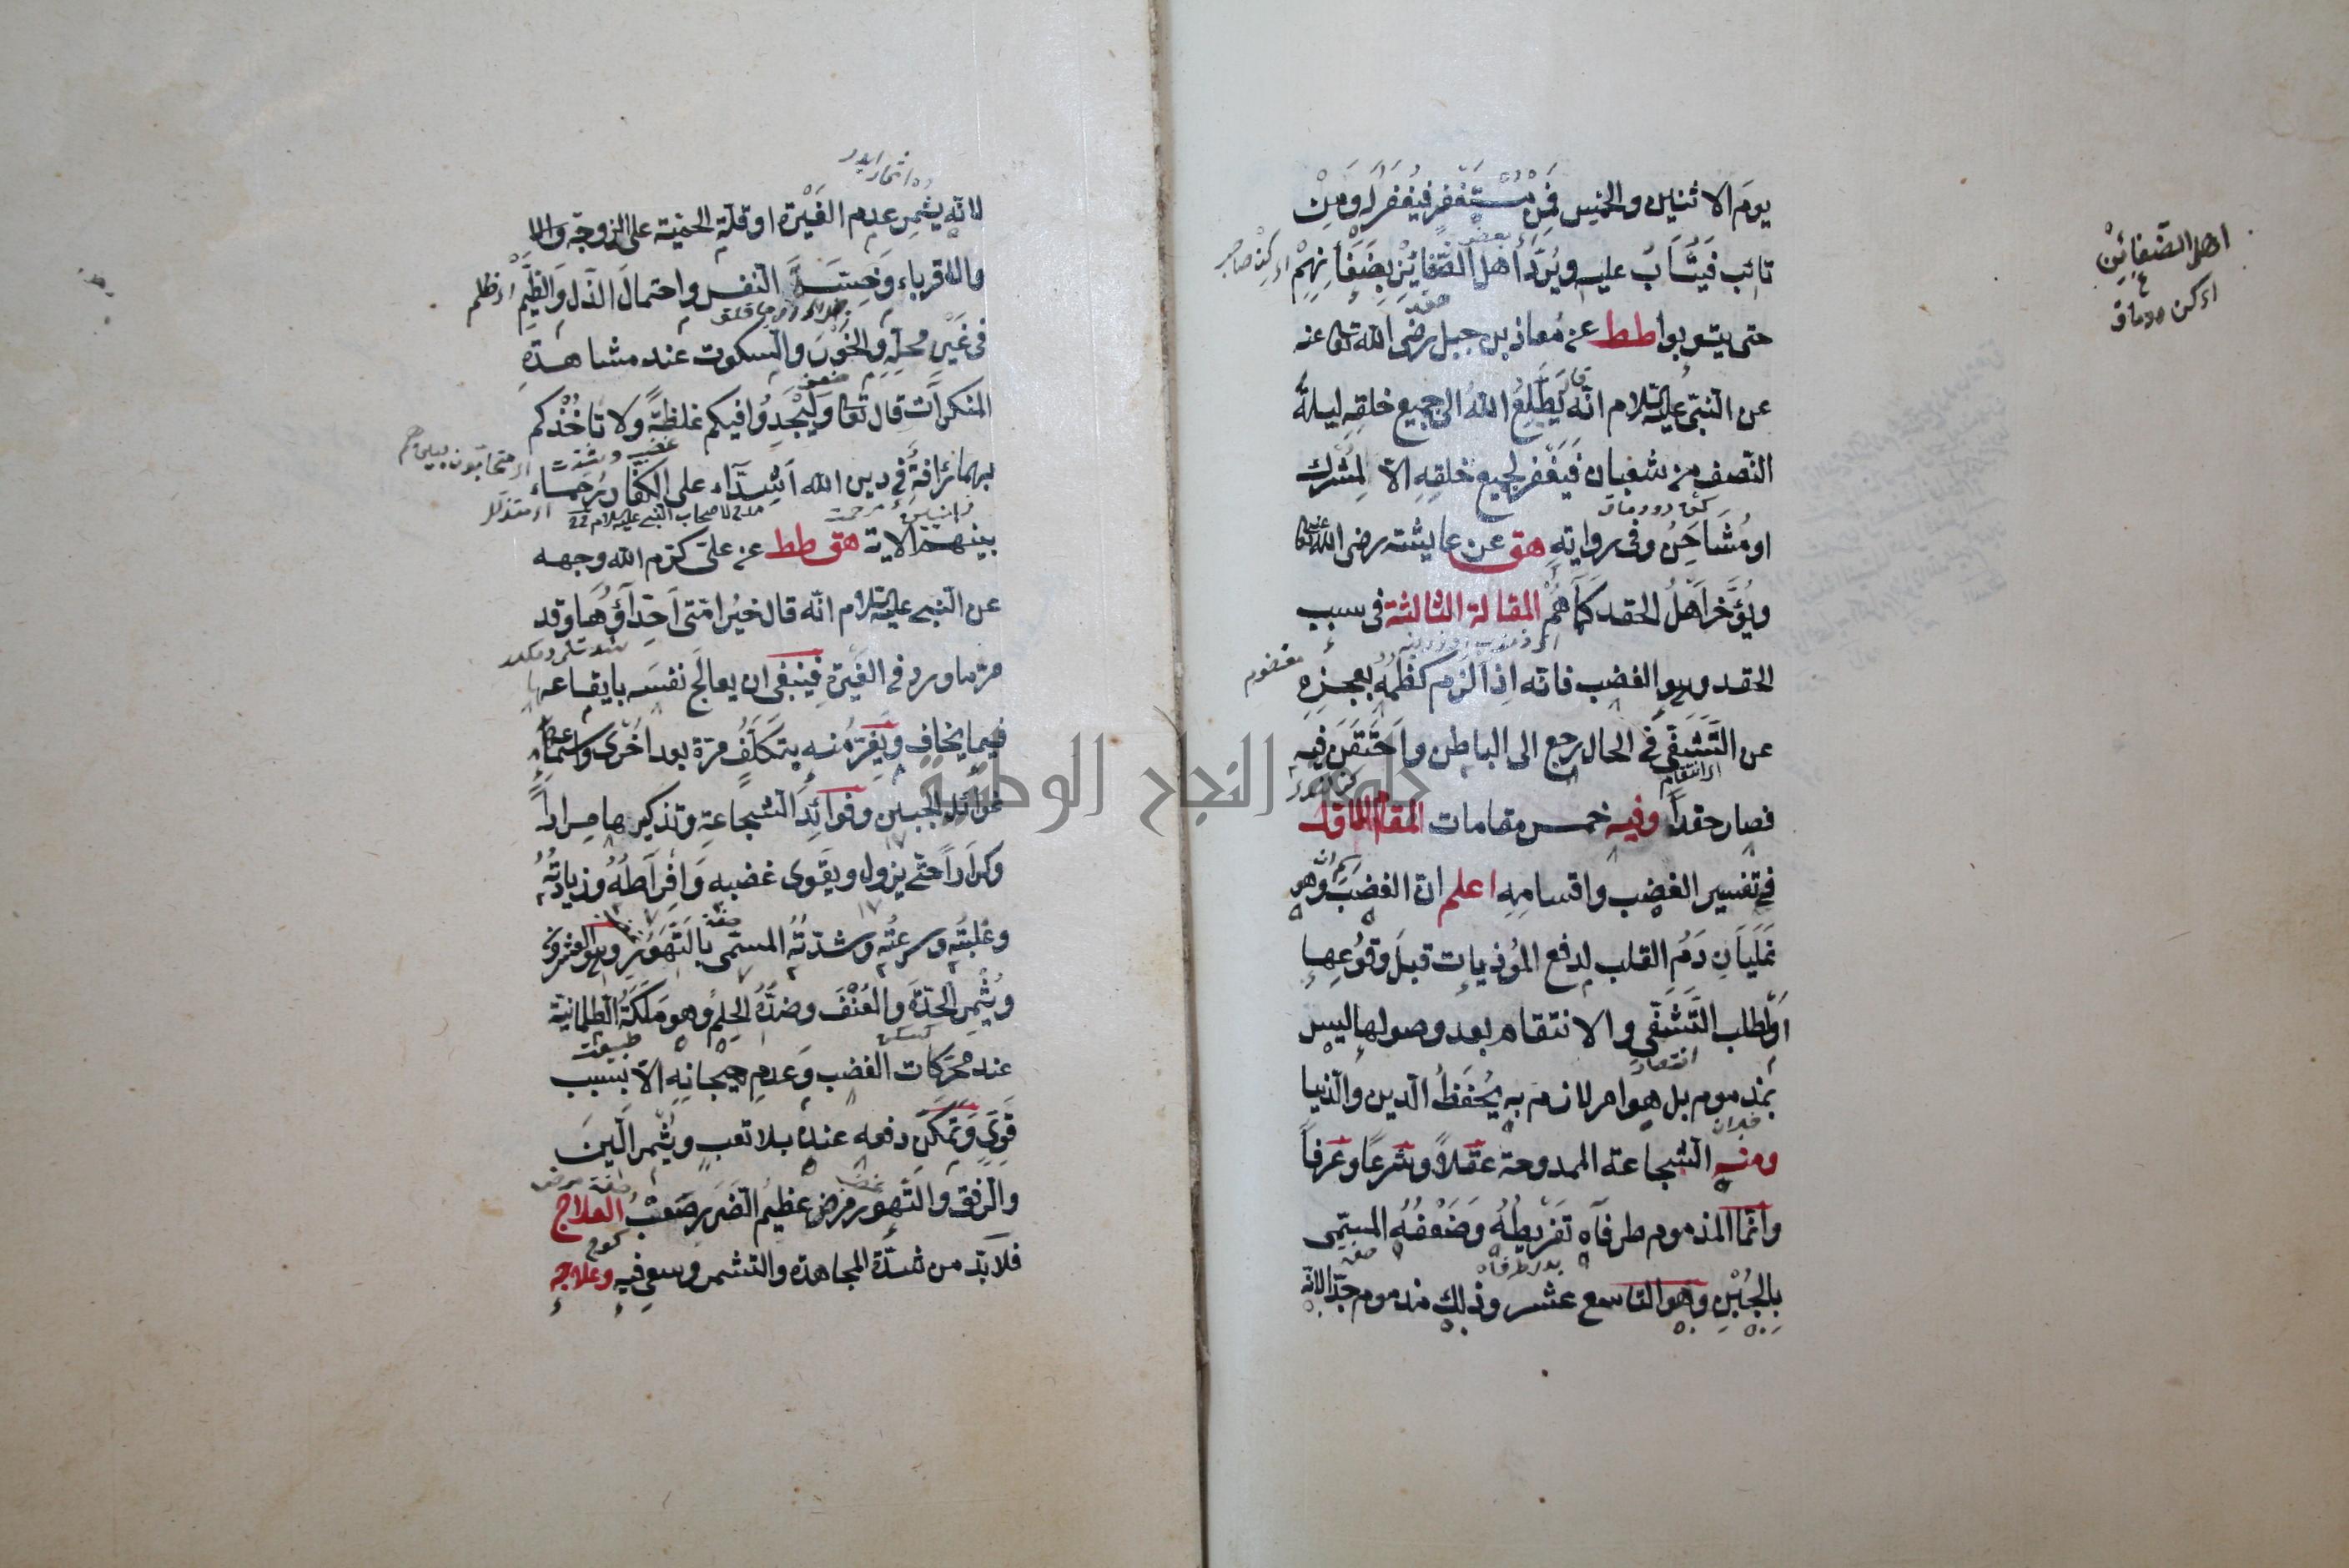 يوم الاثنين والخميس فمن مستغفر فيغفر له ومن
تائب فيتاب عليه ويرد أهل الضغائن بضغائنهم
حتى يتوبوا طط عن معاذ بن جبل رضى الله تعالى عنه
عن النبى عليه السلام انه قال يطلع الله الى جميع خلقه ليلة
النصف من شعبان فيغفر لجميع خلقه الا لمشرك
او مشاحن وفى رواية هق عن عايشة رضى الله تعالى عنها
ويؤخر اهل الحقد كما هم المقالة الثالثة فى سبب
الحقد وهو الغضب فانه اذا لزم كظمه بعجزه
عن التشفى فى الحال رجع الى الباطن واحتقن فيه
فصار حقدا وفيه خمس مقامات المقام الاول
فى تفسير الغضب واقسامه اعلم ان الغضب وهو
غليان دم القلب لدفع المؤذيات قبل وقوعها
او لطلب التشفى والانتقام بعد وصولها ليس
بمذموم بل هو امر لازم به يحفظ الدين والدنيا
ومنه الشجاعة الممدوحة عقلا وشرعا وعرفا
وانما المذموم طرفاه تفريطه وضعفه المسمى
بالجبن وهو التاسع عشر وذلك مذموم جدا لانه
اهل الضغائن
لانه يثمر عدم الغيرة او قلة الحمية على الزوجة
والاقرباء وخسة النفس واحتمال الذل والظيم اى ظلم
فى غير محله والخور والسكوت عند مشاهدة
المنكرات قال تعالى وليجدوا فيكم غلظة ولا تأخذكم
بهما رأفة فى دين الله اشداء على الكفار رحماء
بينهم الاية هق طط عن على كرم الله وجهه
عن النبى عليه السلام انه قال خير امتى احداؤها وقد
مر ما ورد فى الغيرة فينبغى ان يعالج نفسه بايقاعها
فيما يخاف ويفر منه بتكلف مرة بعد اخرى واسماعه
غوائل الجبن وفوائد الشجاعة وتذكيرها مرارا
وكرارا حتى يزول ويقوى غضبه وافراطه وزيادته
وغلبته وسرعته وشدته المسمى بالتهور وهو العشرون
ويثمر الحدة والعنف وضده الحلم وهو ملكة الطمانية
عند محركات الغضب وعدم هيجانه الا بسبب
قوى وتمكن دفعه عنده بلا تعب ويثمر اللين
والرفق والتهور مرض عظيم الضرر صعب العلاج
فلا بد من شدة المجاهدة والتشمر وسعى فيه وعلاجه
النجاح الوطنية